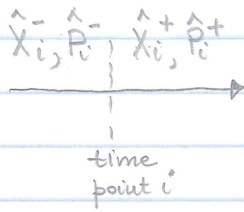 X̂ᵢ⁻, P̂ᵢ⁻ X̂ᵢ⁺, P̂ᵢ⁺
time
point i